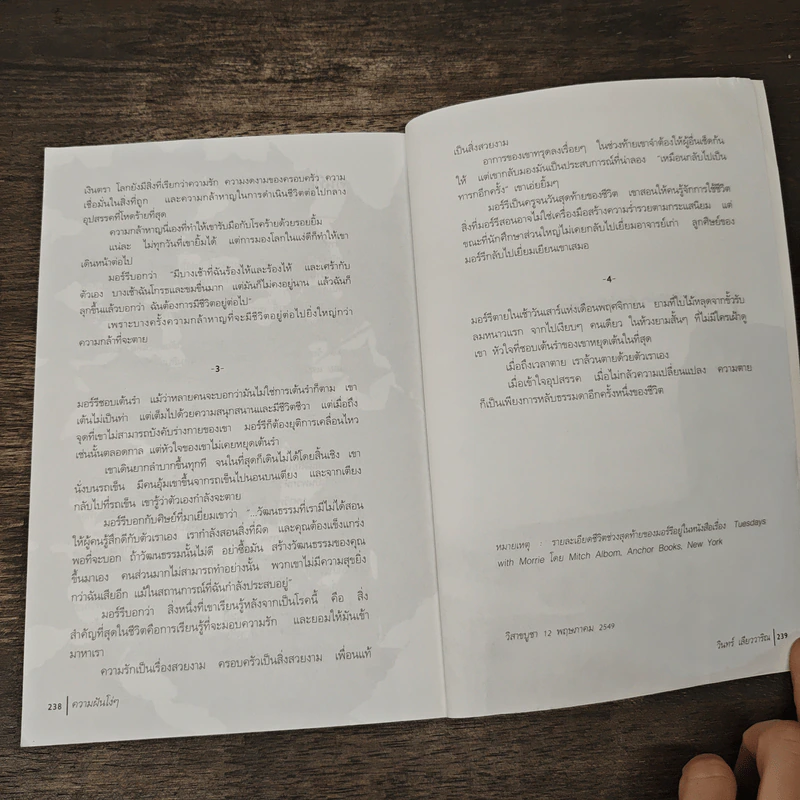 เงินตรา โลกยังมีสิ่งที่เรียกว่าความรัก ความงดงามของครอบครัว ความ
เชื่อมั่นในสิ่งที่ถูก และความกล้าหาญในการดำเนินชีวิตต่อไปกลาง
อุปสรรคที่โหดร้ายที่สุด
ความกล้าหาญนี่เองที่ทำให้เขารับมือกับโรคร้ายด้วยรอยยิ้ม
แน่ละ ไม่ทุกวันที่เขายิ้มได้ แต่การมองโลกในแง่ดีก็ทำให้เขา
เดินหน้าต่อไป
มอร์รีบอกว่า "มีบางเช้าที่ฉันร้องไห้และร้องไห้ และเศร้ากับ
ตัวเอง บางเช้าฉันโกรธและขมขื่นมาก แต่มันก็ไม่คงอยู่นาน แล้วฉันก็
ลุกขึ้นแล้วบอกว่า ฉันต้องการมีชีวิตอยู่ต่อไป"
เพราะบางครั้งความกล้าหาญที่จะมีชีวิตอยู่ต่อไปยิ่งใหญ่กว่า
ความกล้าที่จะตาย
-3-
มอร์รีชอบเต้นรำ แม้ว่าหลายคนจะบอกว่ามันไม่ใช่การเต้นรำก็ตาม เขา
เต้นไม่เป็นท่า แต่เต็มไปด้วยความสนุกสนานและมีชีวิตชีวา แต่เมื่อถึง
จุดที่เขาไม่สามารถบังคับร่างกายของเขา มอร์รีก็ต้องยุติการเคลื่อนไหว
เช่นนั้นตลอดกาล แต่หัวใจของเขาไม่เคยหยุดเต้นรำ
เขาเดินยากลำบากขึ้นทุกที จนในที่สุดก็เดินไม่ได้โดยสิ้นเชิง เขา
นั่งบนรถเข็น มีคนอุ้มเขาขึ้นจากรถเข็นไปนอนบนเตียง และจากเตียง
กลับไปที่รถเข็น เขารู้ว่าตัวเองกำลังจะตาย
มอร์รีบอกกับศิษย์ที่มาเยี่ยมเขาว่า "...วัฒนธรรมที่เรามีไม่ได้สอน
ให้ผู้คนรู้สึกดีกับตัวเราเอง เรากำลังสอนสิ่งที่ผิด และคุณต้องแข็งแกร่ง
พอที่จะบอก ถ้าวัฒนธรรมนั้นไม่ดี อย่าซื้อมัน สร้างวัฒนธรรมของคุณ
ขึ้นมาเอง คนส่วนมากไม่สามารถทำอย่างนั้น พวกเขาไม่มีความสุขยิ่ง
กว่าฉันเสียอีก แม้ในสถานการณ์ที่ฉันกำลังประสบอยู่"
มอร์รีบอกว่า สิ่งหนึ่งที่เขาเรียนรู้หลังจากเป็นโรคนี้ คือ สิ่ง
สำคัญที่สุดในชีวิตคือการเรียนรู้ที่จะมอบความรัก และยอมให้มันเข้า
มาหาเรา
ความรักเป็นเรื่องสวยงาม ครอบครัวเป็นสิ่งสวยงาม เพื่อนแท้
238 | ความฝันโง่ๆ
เป็นสิ่งสวยงาม
อาการของเขาทรุดลงเรื่อยๆ ในช่วงท้ายเขาจำต้องให้ผู้อื่นเช็ดก้น
ให้ แต่เขากลับมองมันเป็นประสบการณ์ที่น่าลอง "เหมือนกลับไปเป็น
ทารกอีกครั้ง" เขาเอ่ยยิ้มๆ
มอร์รีเป็นครูจนวันสุดท้ายของชีวิต เขาสอนให้คนรู้จักการใช้ชีวิต
สิ่งที่มอร์รีสอนอาจไม่ใช่เครื่องมือสร้างความร่ำรวยตามกระแสนิยม แต่
ขณะที่นักศึกษาส่วนใหญ่ไม่เคยกลับไปเยี่ยมอาจารย์เก่า ลูกศิษย์ของ
มอร์รีกลับไปเยี่ยมเยียนเขาเสมอ
-4-
มอร์รีตายในเช้าวันเสาร์แห่งเดือนพฤศจิกายน ยามที่ใบไม้หลุดจากขั้วรับ
ลมหนาวแรก จากไปเงียบๆ คนเดียว ในห้วงยามสั้นๆ ที่ไม่มีใครเฝ้าดู
เขา หัวใจที่ชอบเต้นรำของเขาหยุดเต้นในที่สุด
เมื่อถึงเวลาตาย เราล้วนตายด้วยตัวเราเอง
เมื่อเข้าใจอุปสรรค เมื่อไม่กลัวความเปลี่ยนแปลง ความตาย
ก็เป็นเพียงการหลับธรรมดาอีกครั้งหนึ่งของชีวิต
หมายเหตุ : รายละเอียดชีวิตช่วงสุดท้ายของมอร์รีอยู่ในหนังสือเรื่อง Tuesdays
with Morrie โดย Mitch Albom, Anchor Books, New York
วิสาขบูชา 12 พฤษภาคม 2549
วินทร์ เลียววาริณ | 239